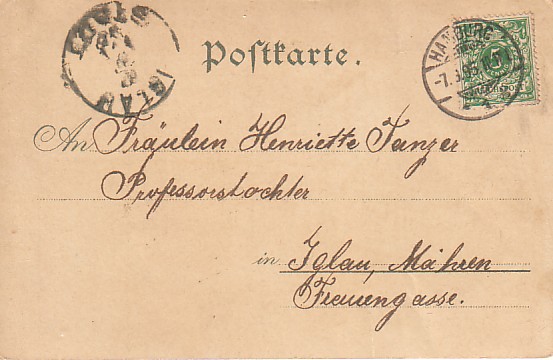 Postkarte.
HAMBURG
IGLAU STADT
An Fräulein Henriette Tanzer
Professorstochter
in Iglau, Mähren
Frauengasse.